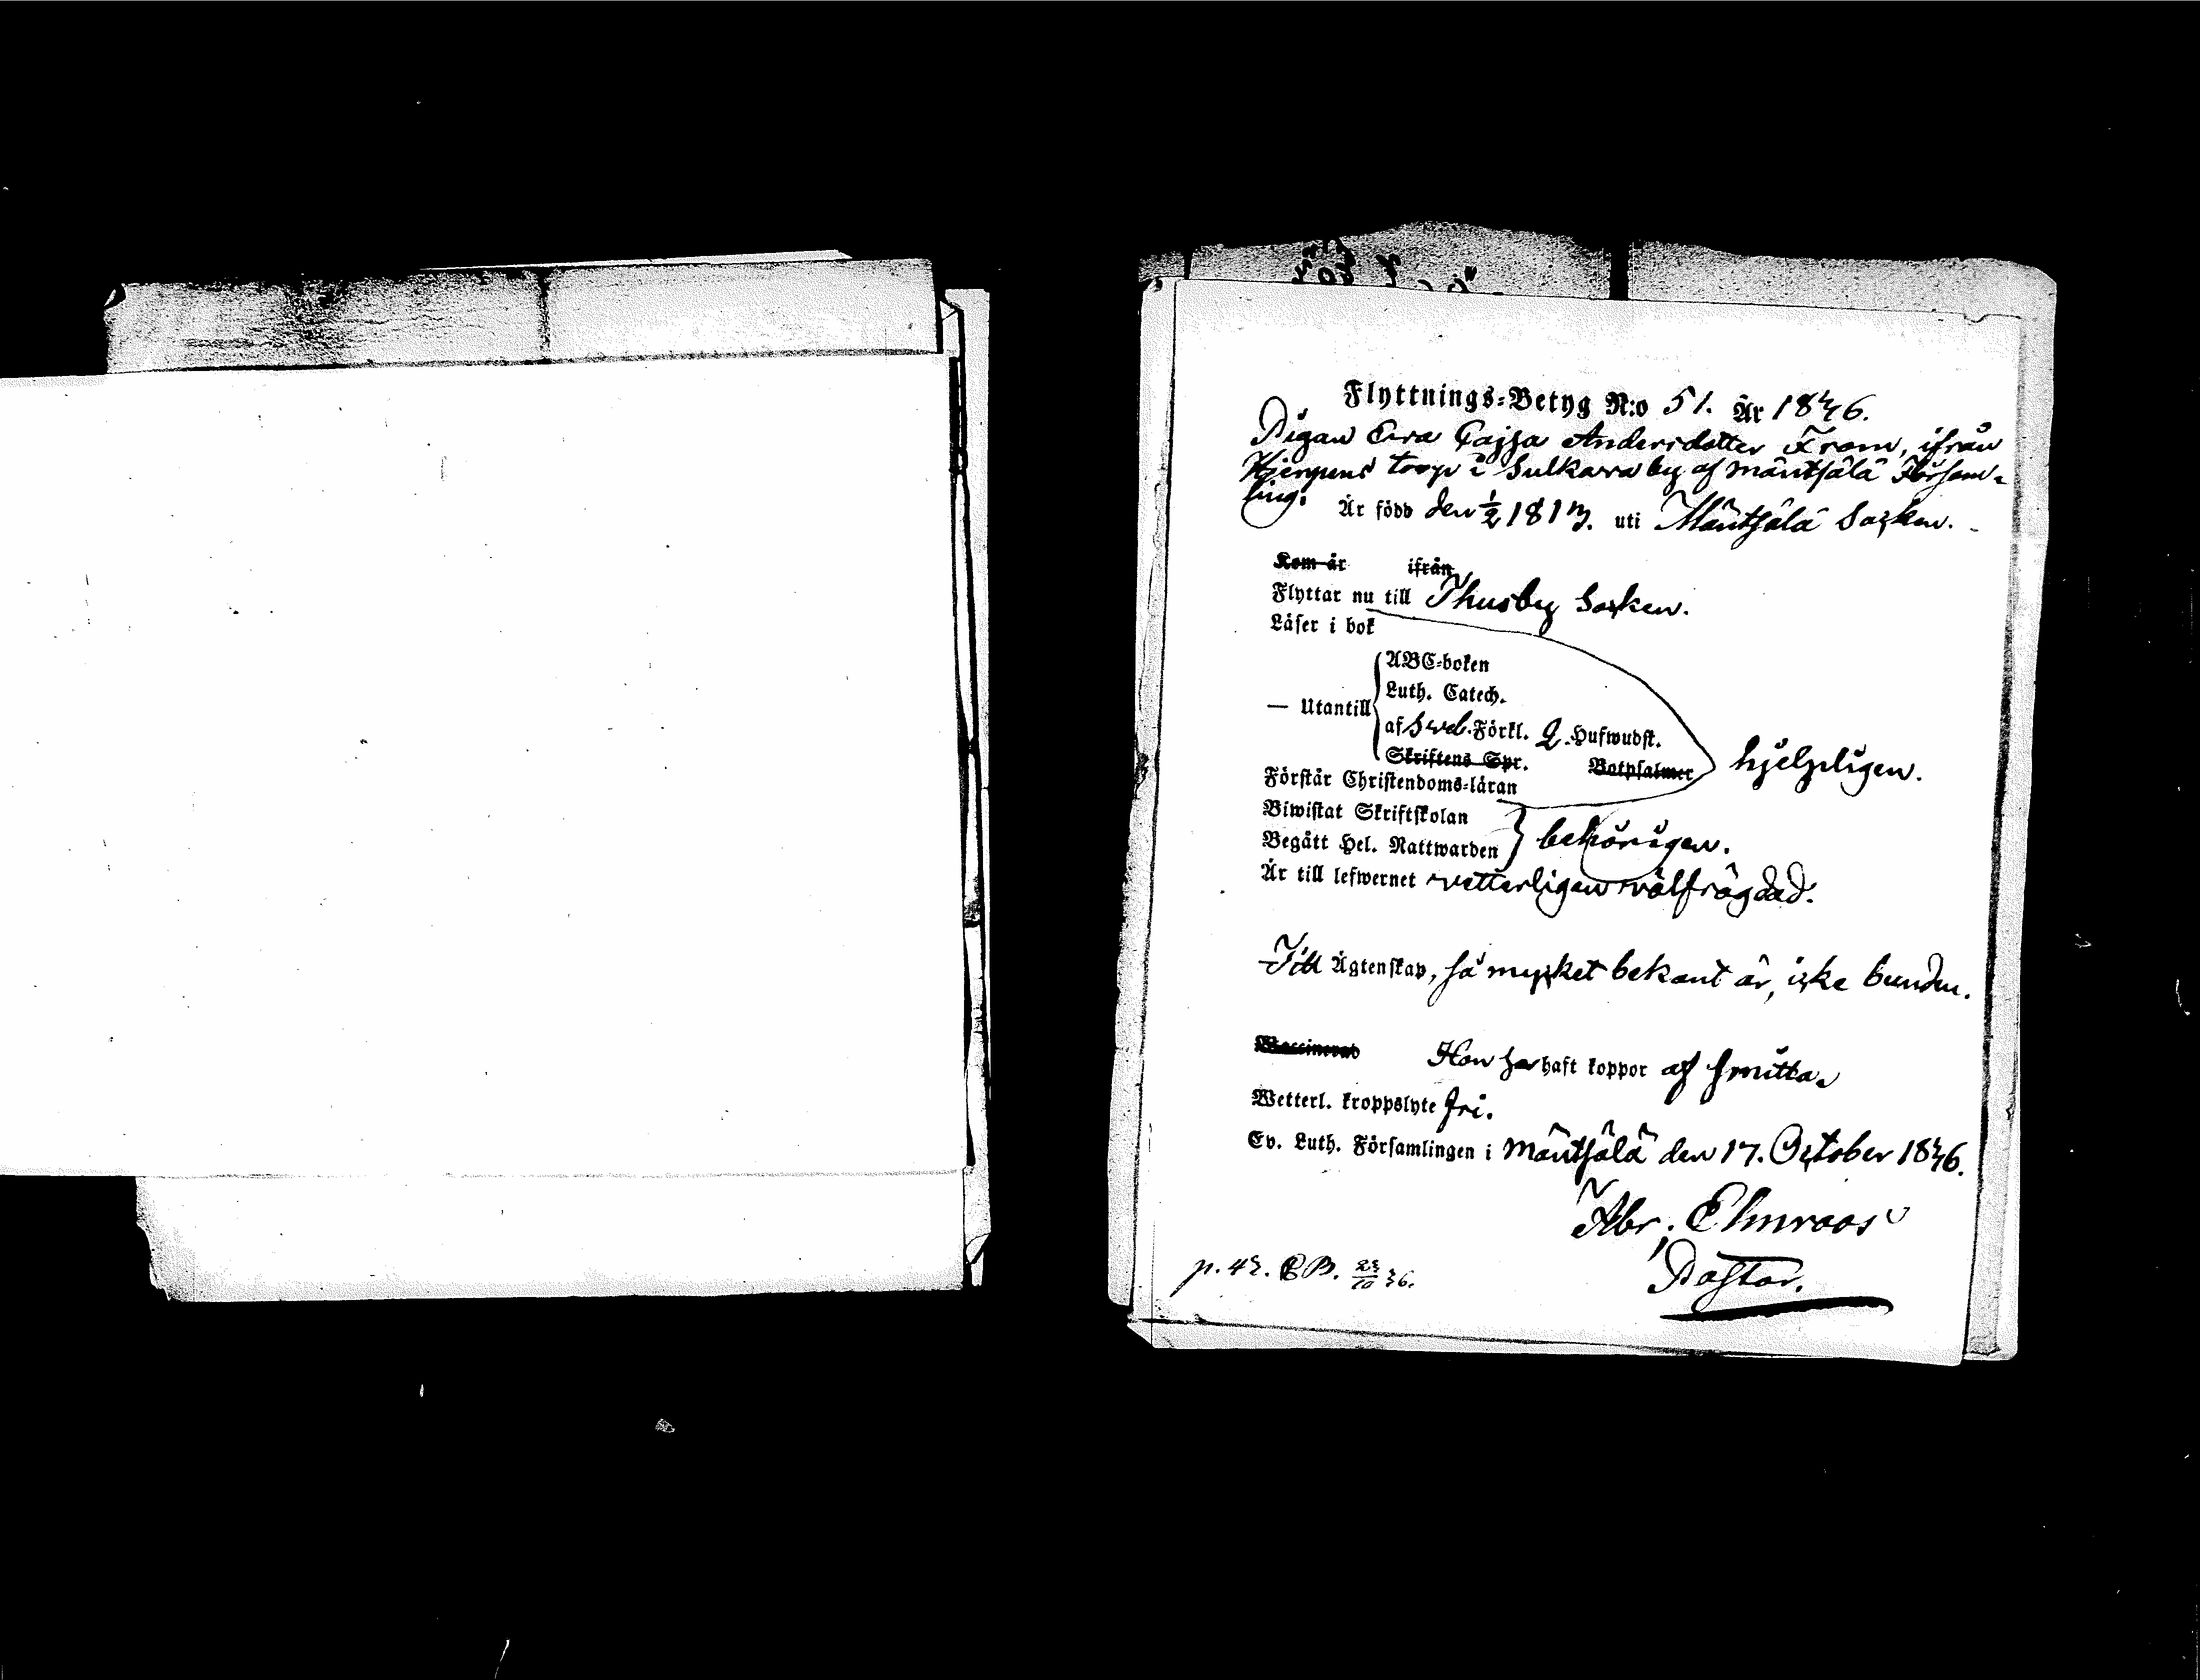 Flyttnings-Betyg N:o 51. År 1836.
Pigan Eva Cajsa Andersdotter From, ifrån
torp i Sulkava by af Mäntsälä Församling.
Är född den 1/2 1813. uti Mäntsälä Socken.
Kom år ifrån
Flyttar nu till Thusby Socken.
Läser i bok
ABC-boken
Luth. Catech.
— Utantill
af Sveb. Förkl. 2. Hufwudst.
Skriftens Spr. Botpsalmer
hjelpligen.
Förstår Christendoms-läran
Biwistat Skriftskolan
Begått Hel. Nattwarden
behörigen.
Är till lefwernet vetterligen välfrägdad.
Till Ägtenskap, så mycket bekant är, icke bunden.
Vaccinerad Hon har haft koppor af smitta.
Wetterl. kroppslyte fri.
Ev. Luth. Församlingen i Mäntsälä den 17. October 1836.
Abr. Elmroos
Pastor.
p. 42. CB. 23/10 36.